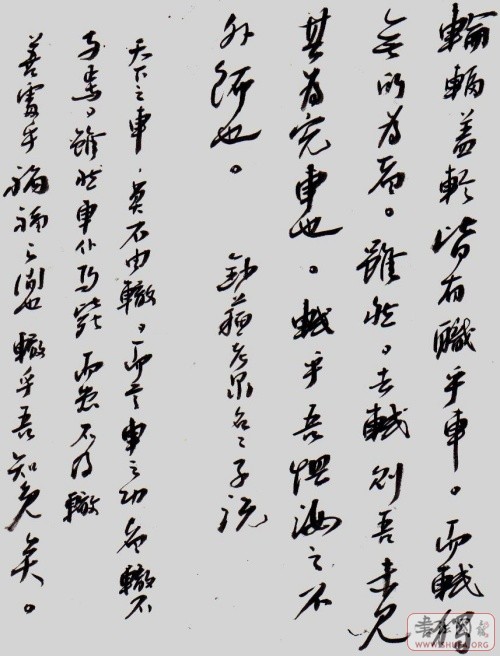 輪輻蓋軫皆有職乎車。而軾獨
無所為者。雖然。去軾則吾未見
其為完車也。軾乎吾懼汝之不
外飾也。 鈔蘇老泉名二子說
天下之車，莫不由轍。而言車之功者轍不
与焉。雖然車仆馬斃而患不及轍
善處乎禍福之間也轍乎吾知免矣。
WWW.SHUFA.ORG